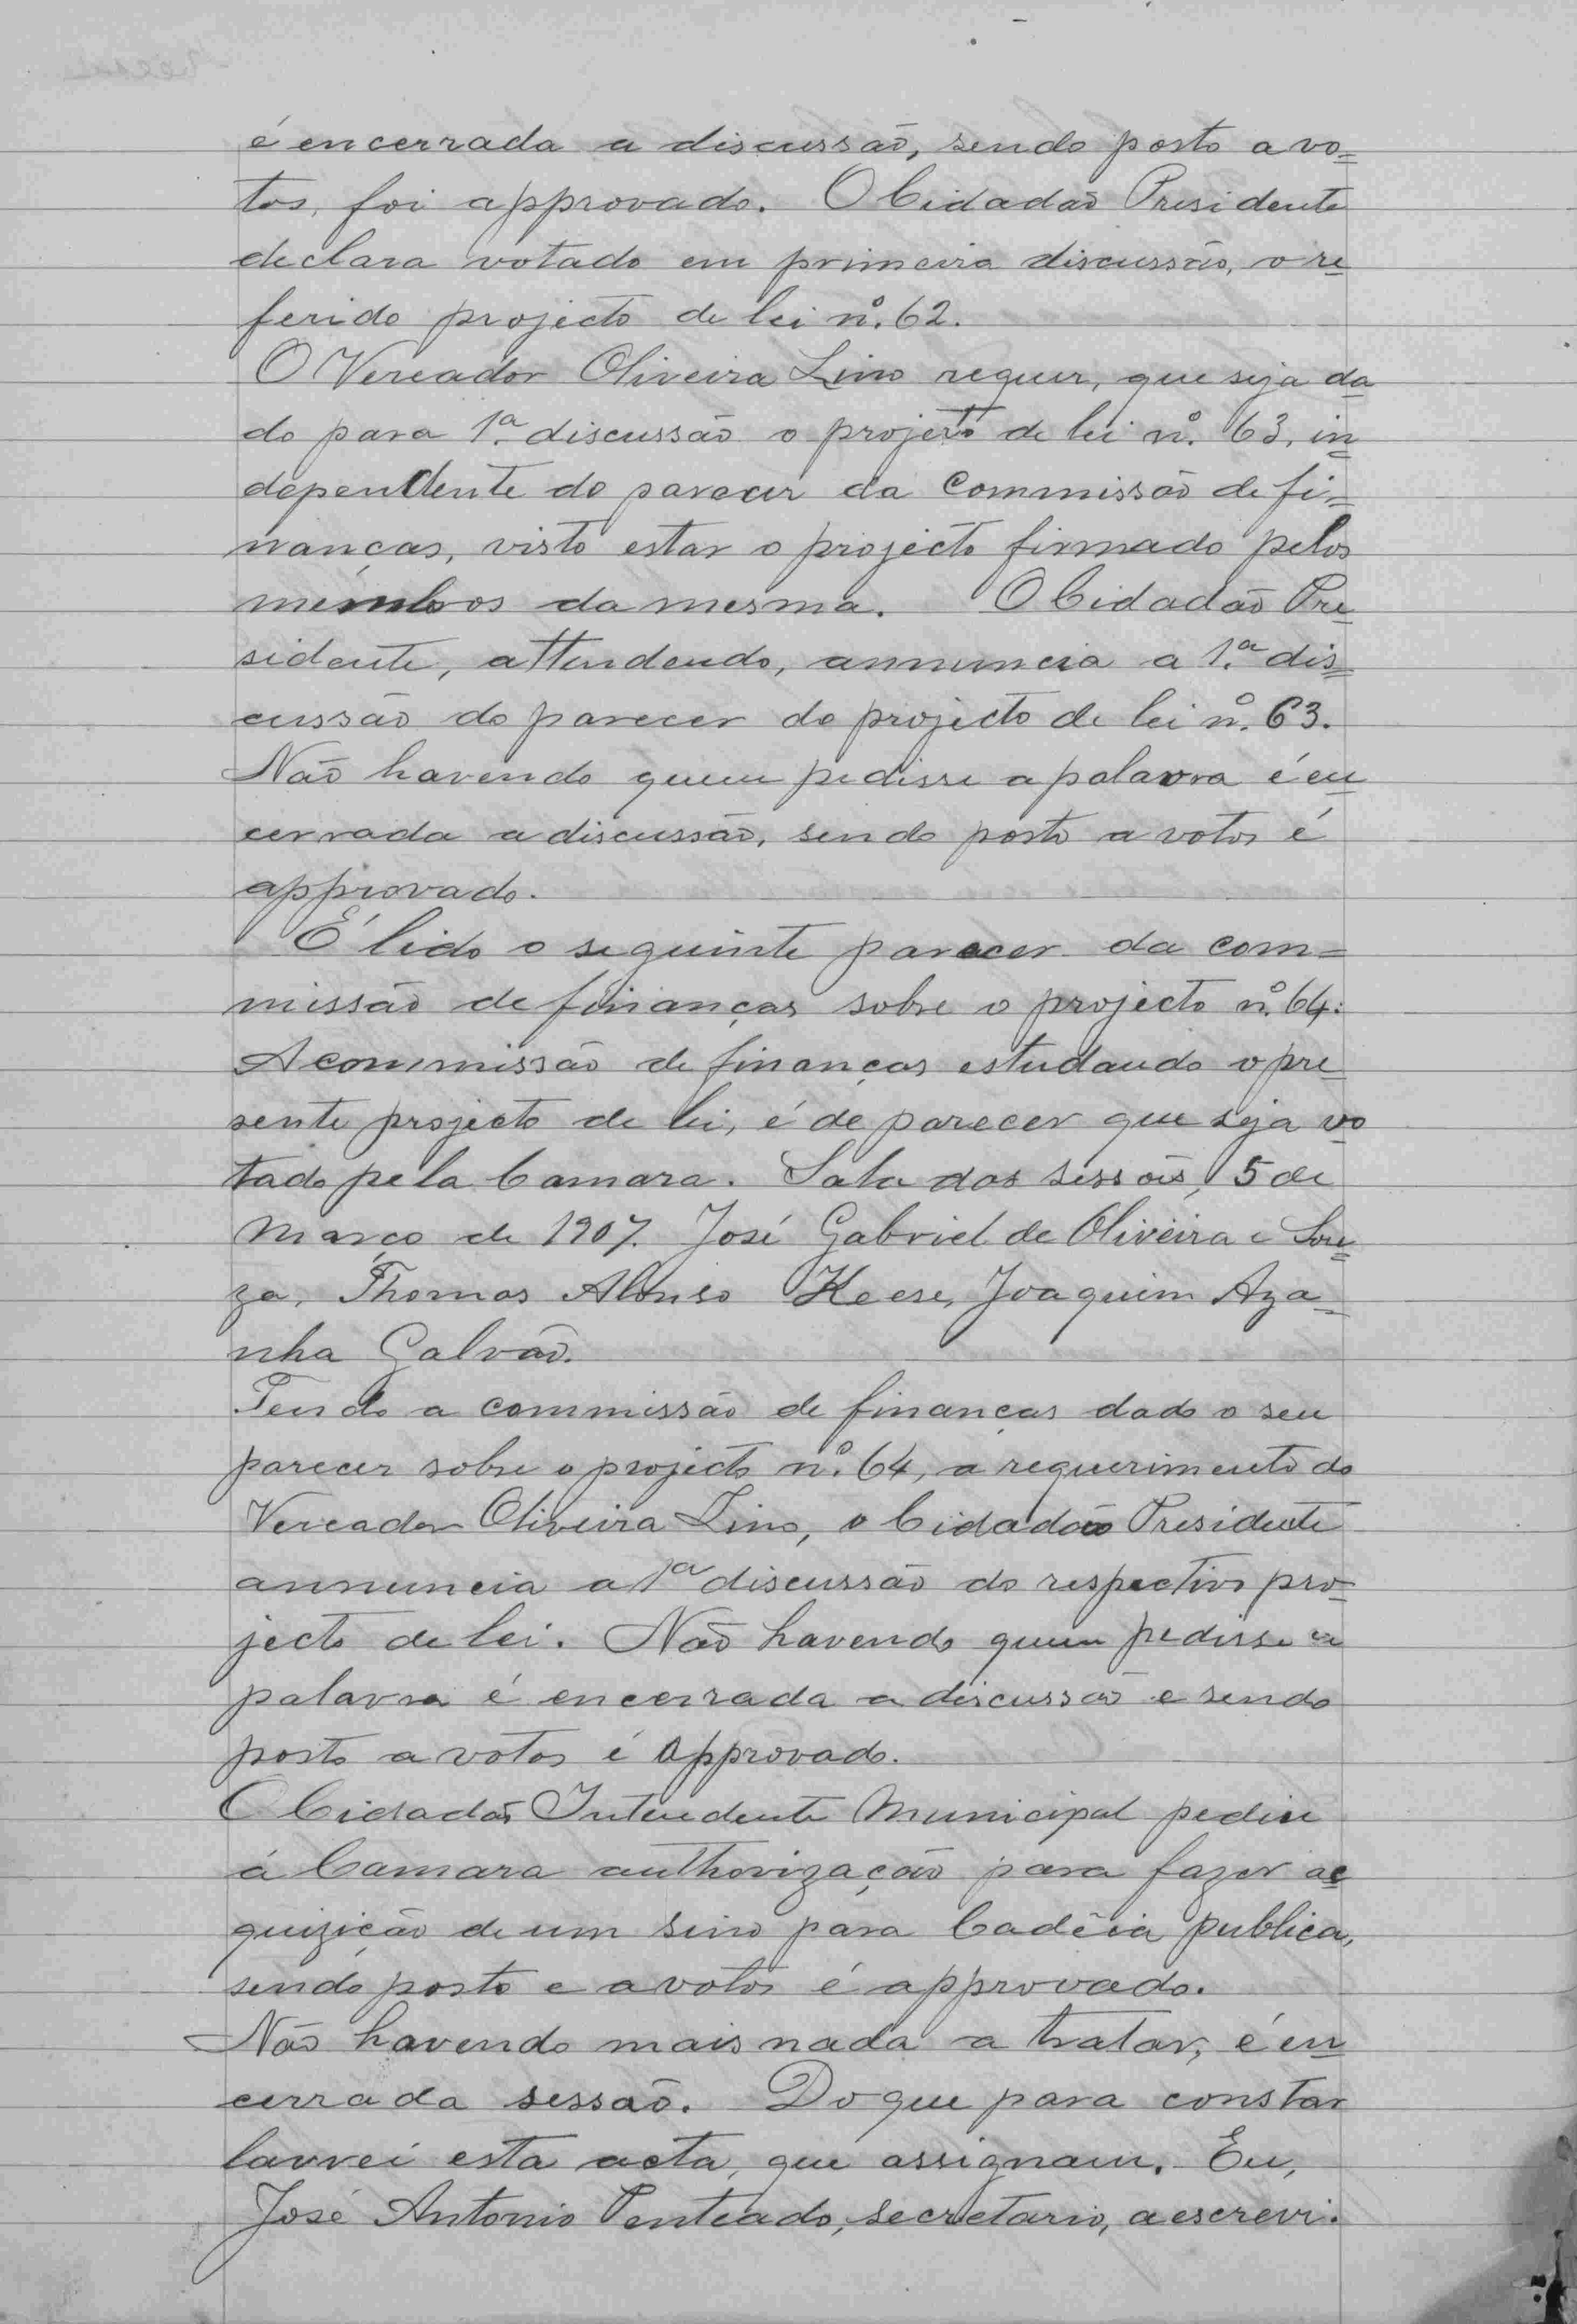 é encerrada a discussão, sendo posto a vo=
tos, foi approvado. O Cidadão Presidente
declara votado em primeira discussão, o re
ferido projecto de lei nº. 62.
O Vereador Oliveira Lino requer, que seja da
do para 1ª. discussão o projecto de lei nº. 63, in
dependente do parecer da Commissão de fi=
nanças, visto estar o projecto firmado pelos
membros da mesma. O Cidadão Pre
sidente, attendendo, annuncia a 1ª. dis=
cussão do parecer do projecto de lei nº. 63.
Não havendo quem pedisse a palavra é en
cerrada a discussão, sendo posto a votos é
approvado.
É lido o seguinte parecer da com=
missão de finanças sobre o projecto nº. 64:
A commissão de finanças estudando o pre
sente projecto de lei, é de parecer que seja vo
tado pela Camara. Sala das sessões, 5 de
Março de 1907. José Gabriel de Oliveira e Sou
za, Thomas Alonso Keese, Joaquim Aza=
nha Galvão.
Tendo a commissão de finanças dado o seu
parecer sobre o projecto nº. 64, a requerimento do
Vereador Oliveira Lino, o Cidadão Presidente
annuncia a 1ª discussão do respectivo pro=
jecto de lei. Não havendo quem pedisse a
palavra é encerrada a discussão e sendo
posto a votos é approvado.
O Cidadão Intendente Municipal pediu
á Camara authorização para fazer ac
quizição de um sino para Cadêia publica,
sendo posto e a votos é approvado.
Não havendo mais nada a tratar, é en
cerrada sessão. Do que para constar
lavrei esta acta, que assignam. Eu,
José Antonio Penteado, secretario, a escrevi.